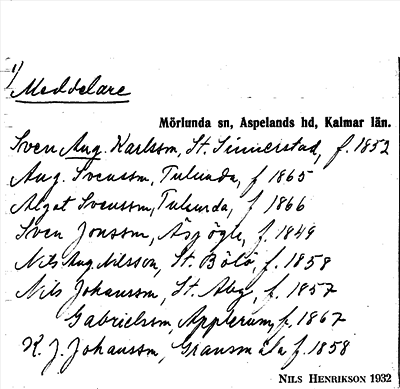 1)
Meddelare
Mörlunda sn, Aspelands hd, Kalmar län.
Sven Aug. Karlsson, St. Sinnerstad, f. 1852
Aug. Svensson, Tulunda, f 1865
Algot Svensson, Tulunda, f 1866
Sven Jonsson, f. 1849
Nils Aug. Nilsson, St. Bölö, f. 1858
Nils Johansson, St. Aby, f. 1857
Gabrielsson, Applerum, f. 1867
K. J. Johansson, f. 1858
NILS HENRIKSON 1932